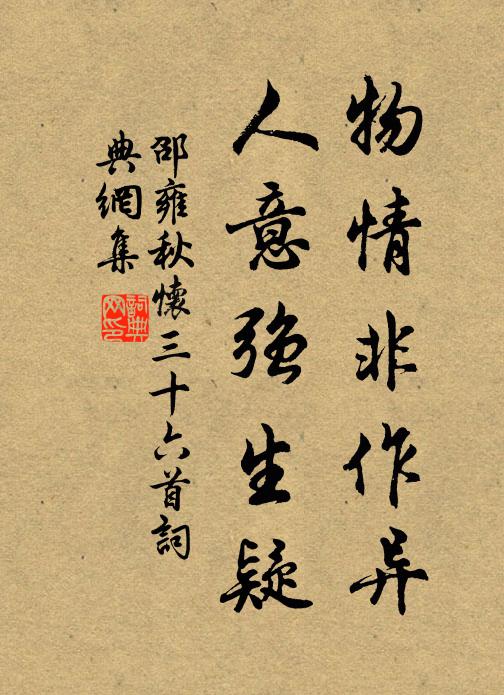 物情非作异
人意強生疑
邵雍秋懷三十六首詞
典網集
詞典网印